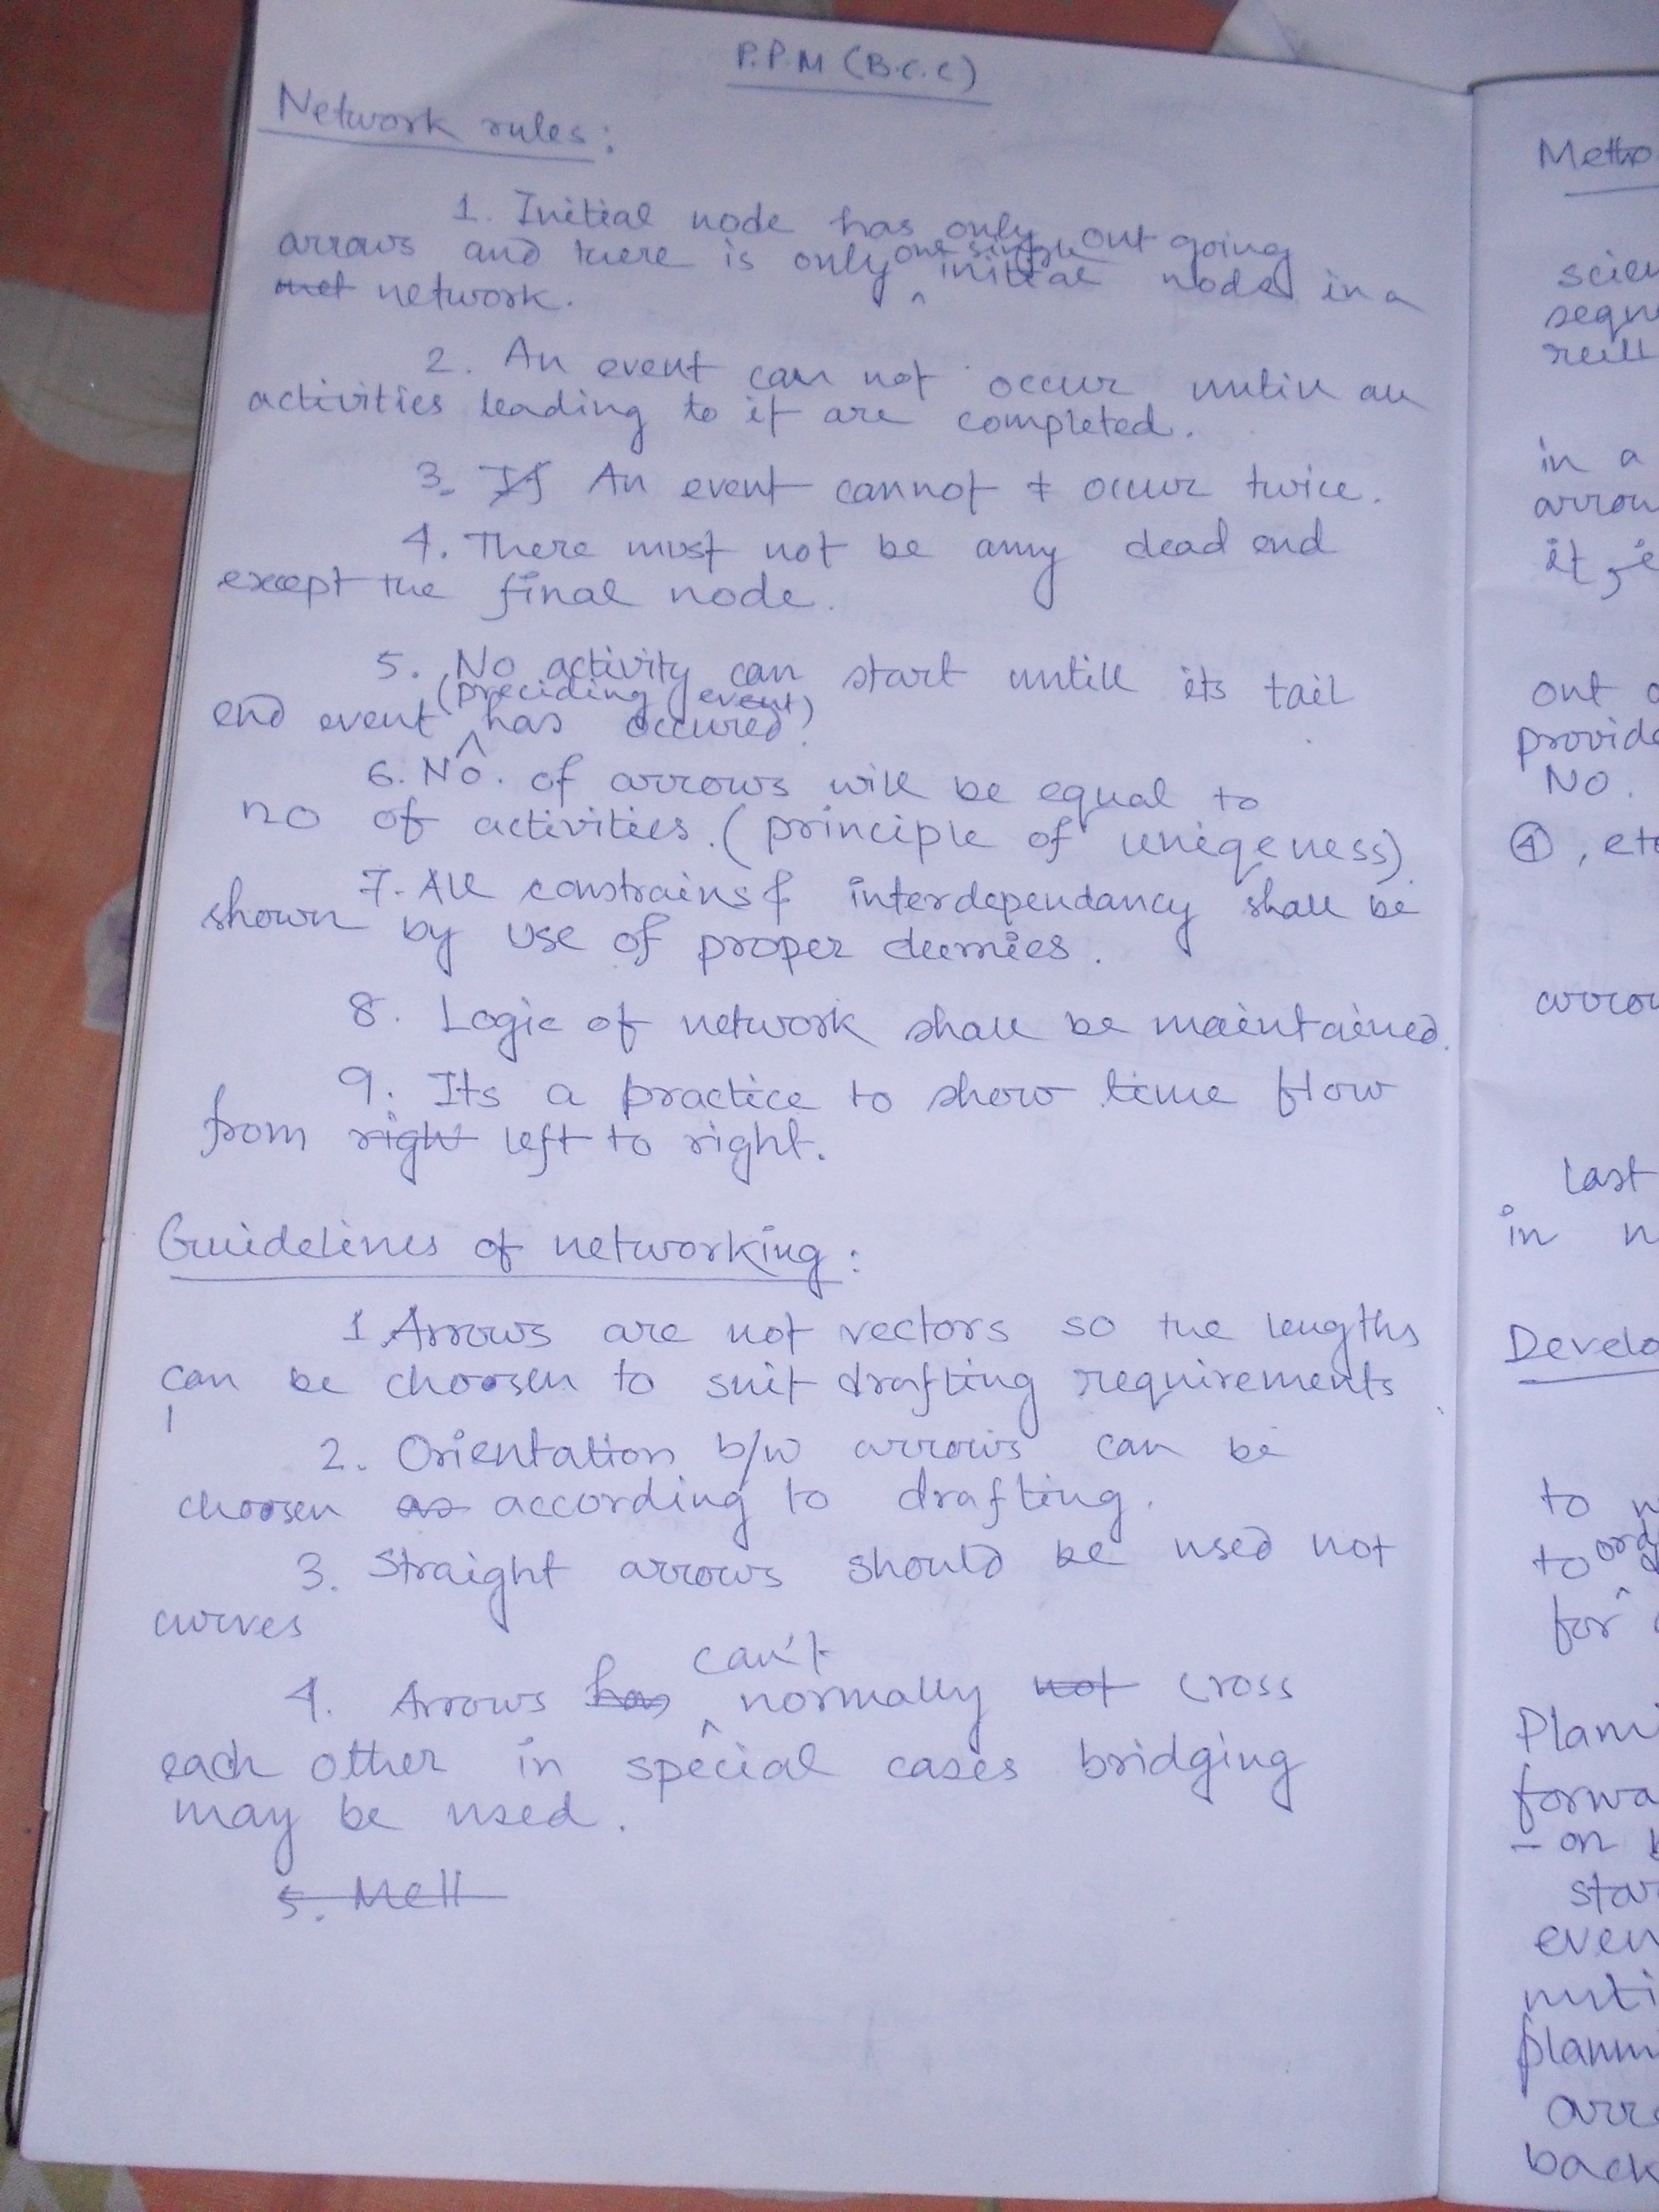 P.P.M (B.C.C)
Network rules:
1. Initial node has only out going
arrows and there is only one single initial node in a
network.
2. An event can not occur untill all
activities leading to it are completed.
3. If An event cannot occur twice.
4. There must not be any dead end
except the final node.
5. No activity can start untill its tail
end event (preciding event) has occured.
6. No. of arrows will be equal to
no of activities. (principle of uniqeness)
7. All constrains & interdependancy shall be
shown by use of proper dumies.
8. Logic of network shall be maintained.
9. Its a practice to show time flow
from right left to right.
Guidelines of networking:
1 Arrows are not vectors so the lengths
can be choosen to suit drafting requirements
2. Orientation b/w arrows can be
choosen as according to drafting.
3. Straight arrows should be used not
curves
4. Arrows has can't normally not cross
each other in special cases bridging
may be used.
5. Mell
Metho
scien
sequ
rell
in a
arrow
it,
out
provide
NO.
④, etc
arrow
last
in n
Develo
to
to ord
for
Plani
forwa
– on
star
even
muti
planni
arr
back